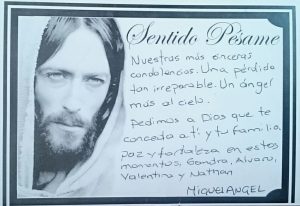 Sentido Pésame
Nuestras más sinceras
condolencias. Una pérdida
tan irreparable. Un ángel
más al cielo.
Pedimos a Dios que te
conceda a ti y tu familia
paz y fortaleza en estos
momentos, Sandra, Alvaro,
Valentino y Nathan
MIGUEL ANGEL